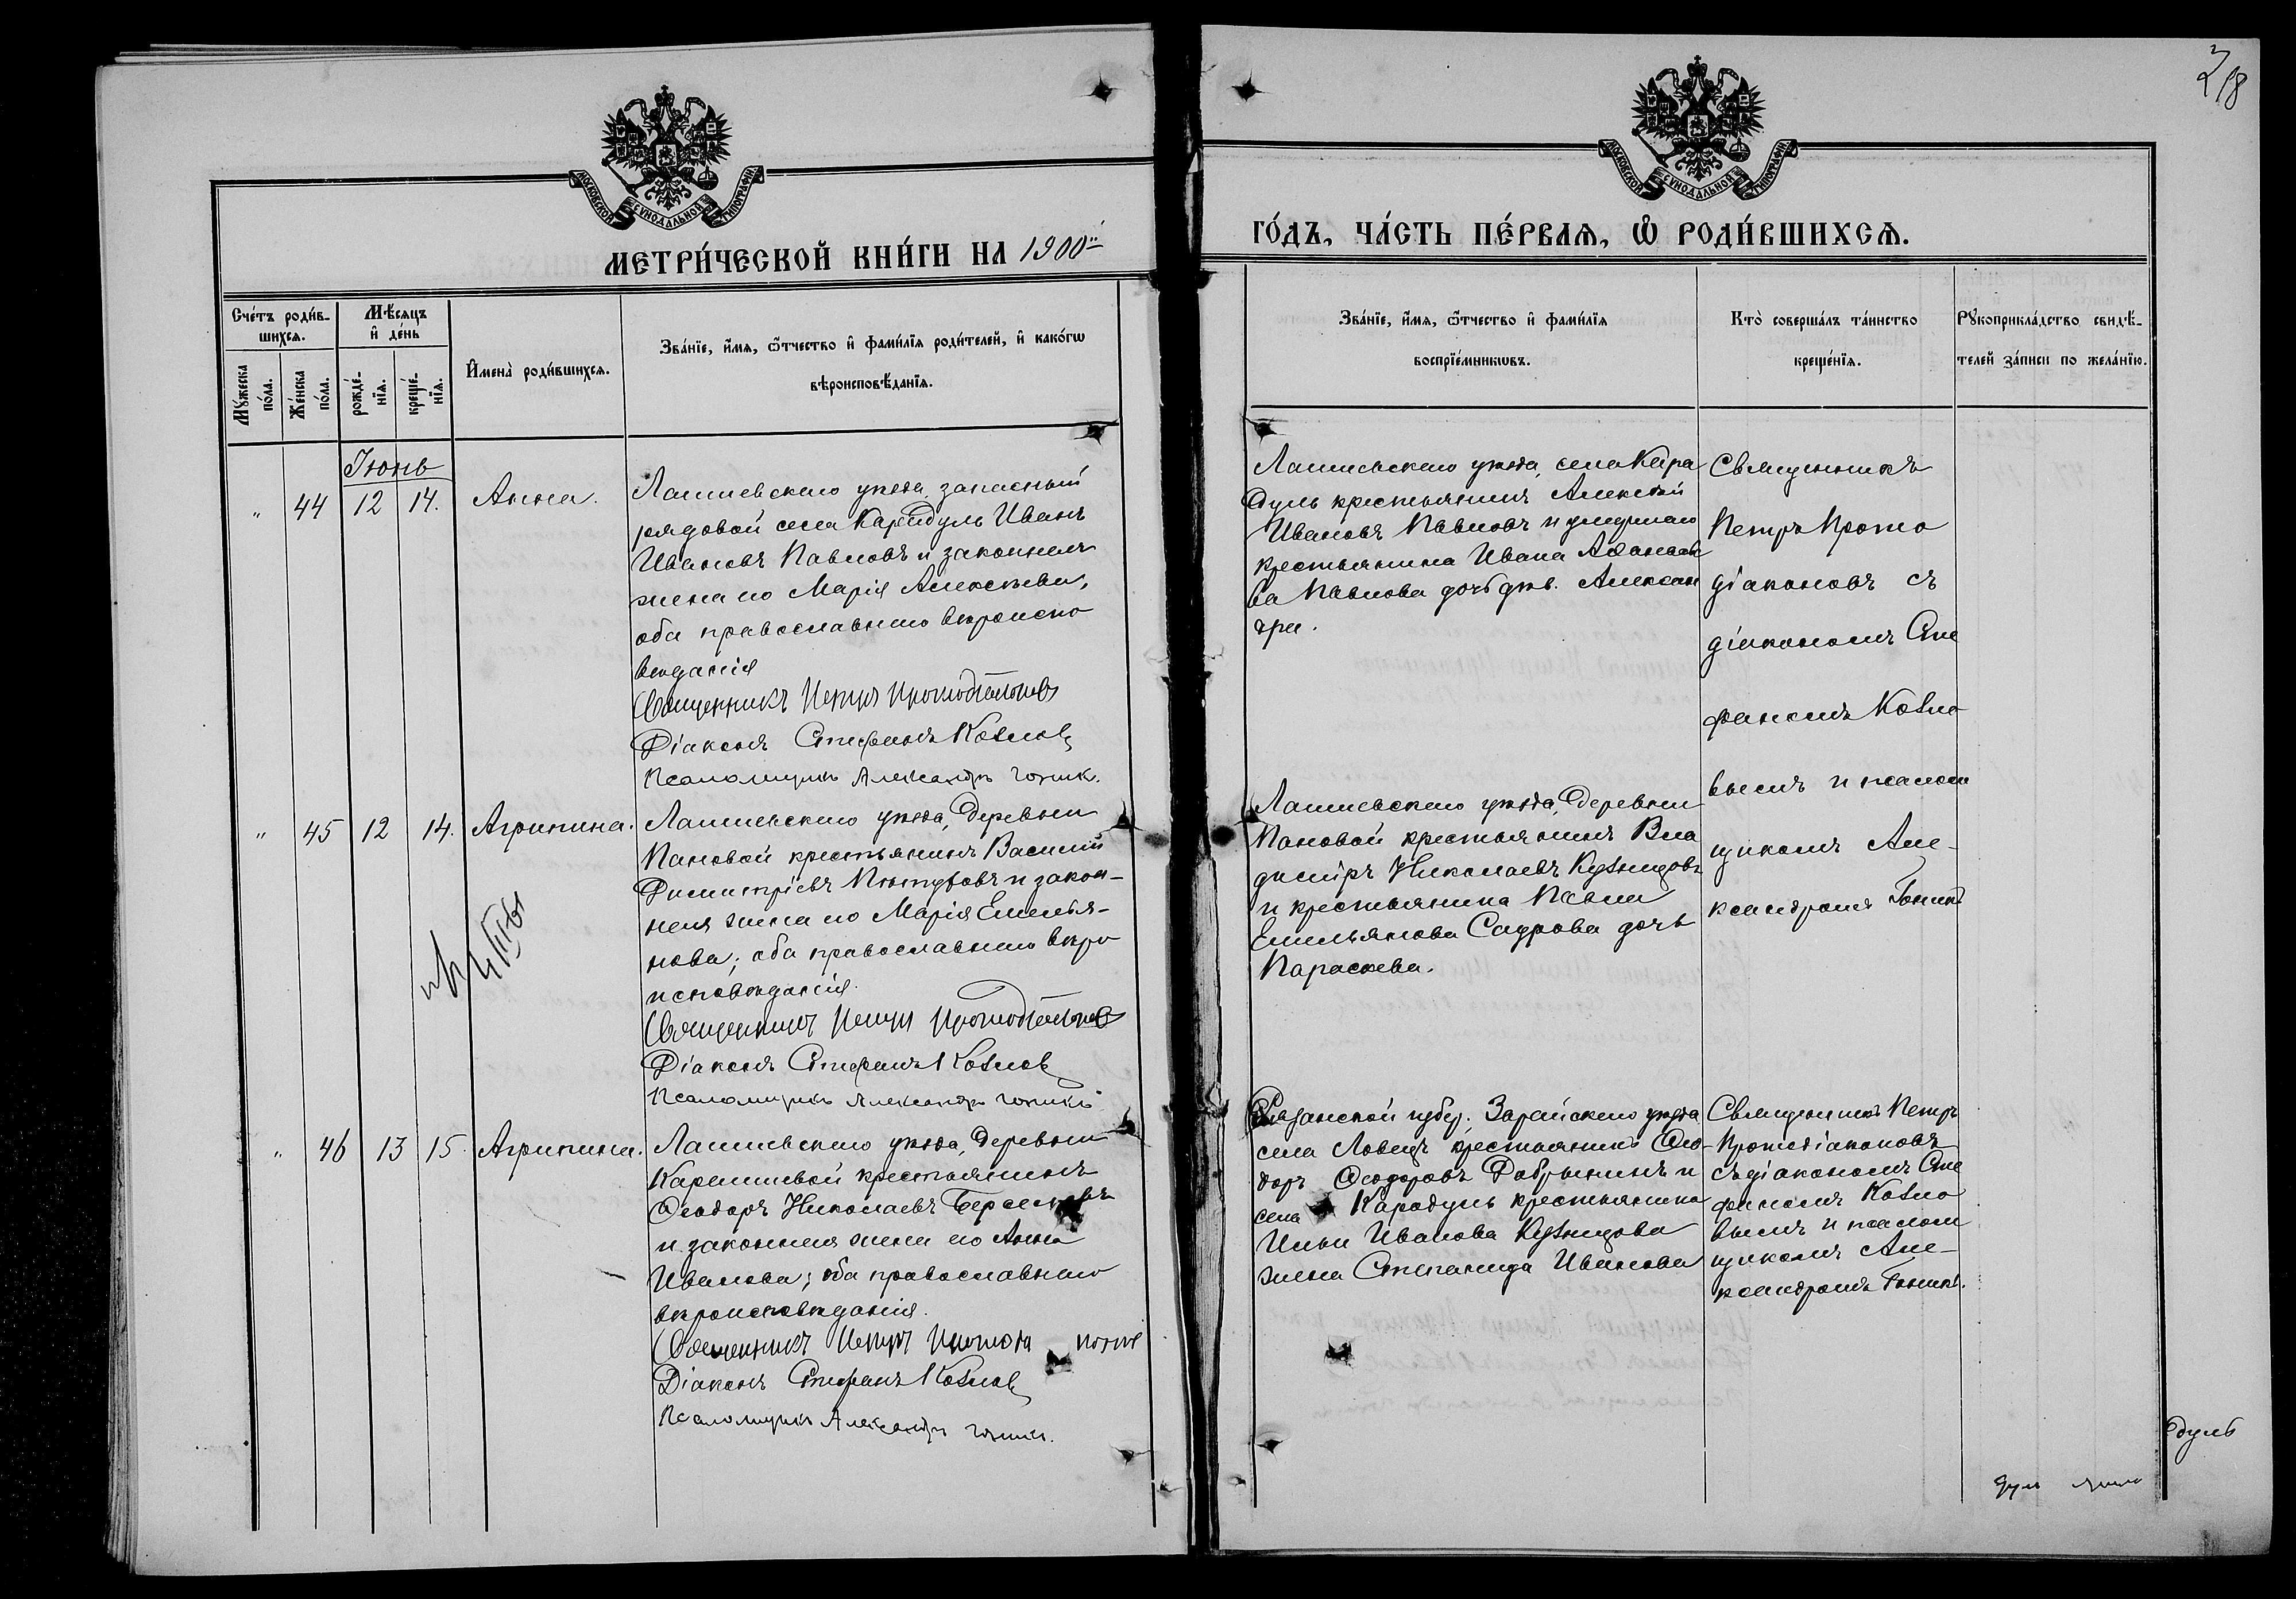 218
МОСКОВСКОЙ СѴНОДАЛЬНОЙ ТИПОГРАФІИ
МОСКОВСКОЙ СѴНОДАЛЬНОЙ ТИПОГРАФІИ
МЕТРИ́ЧЕСКОЙ КНИ́ГИ НА 1900й
ГО́ДЪ, ЧА́СТЬ ПЕ́РВАѦ, Ѽ РОДИ́ВШИХСѦ.
Сче́тъ роди́в-
шихсѧ.
Мѣ́сѧцъ
и҆ де́нь
Мꙋ́жеска
по́ла.
Же́нска
по́ла.
рожде́-
нїѧ.
креще́-
нїѧ.
И҆мена̀ роди́вшихсѧ.
Зва́нїе, и҆́мѧ, ѻ҆́тчество и҆ фами́лїѧ роди́телей, и҆ како́гѡ
вѣроисповѣ́данїѧ.
Зва́нїе, и҆́мѧ, ѻ҆́тчество и҆ фами́лїѧ
воспрїе́мникѡвъ.
Кто̀ соверша́лъ та́инство
креще́нїѧ.
Рꙋкоприкла́дство свидѣ́-
телей за́писи по жела́нїю.
Іюнь
" 44 12 14. Анна.
Лаишевскаго уѣзда, запасный
рядовой села Карадуль Иванъ
Ивановъ Павловъ и законная
жена его Марія Алексѣева,
оба православнаго вѣроиспо
вѣданія
Священникъ Петръ Протодіаконовъ
Діаконъ Стефанъ Козловъ
Псаломщикъ Александръ
Лаишевскаго уѣзда, села Кара
дуль крестьянинъ Алексѣй
Ивановъ Павловъ и умершаго
крестьянина Ивана Аѳанасье
ва Павлова дочь дѣв. Алексан
дра.
Священникъ
Петръ Прото
діаконовъ съ
діакономъ Сте
фаномъ Козло
вымъ и псалом
щикомъ Але-
ксандромъ
" 45 12 14. Агрипина.
Лаишевскаго уѣзда, деревни
Пановой крестьянинъ Василій
Димитріевъ и закон-
ная жена его Марія Емелья-
нова; оба православнаго вѣро
исповѣданія.
Священникъ Петръ Протодіаконовъ
Діаконъ Стефанъ Козловъ
Псаломщикъ Александръ
Лаишевскаго уѣзда, деревни
Пановой крестьянинъ Вла
диміръ Николаевъ Кузнецовъ
и крестьянина Павла
Емельянова Саурова дочь
Параскева.
" 46 13 15. Агрипина.
Лаишевскаго уѣзда, деревни
Карашевой крестьянинъ
Ѳеодоръ Николаевъ
и законная жена его Анна
Иванова; оба православнаго
вѣроисповѣданія.
Священникъ Петръ
Діаконъ Стефанъ Козловъ
Псаломщикъ Александръ
Рязанской губер., Зарайскаго уѣзда
села Ловецъ крестьянинъ Ѳео-
доръ Ѳеодоровъ Добрынинъ и
села Карадуль крестьянина
Ильи Иванова Кузнецова
жена Степанида Иванова
Священникъ Петръ
Протодіаконовъ
съ діакономъ Сте
фаномъ Козло
вымъ и псалом
щикомъ Але-
ксандромъ
дуль